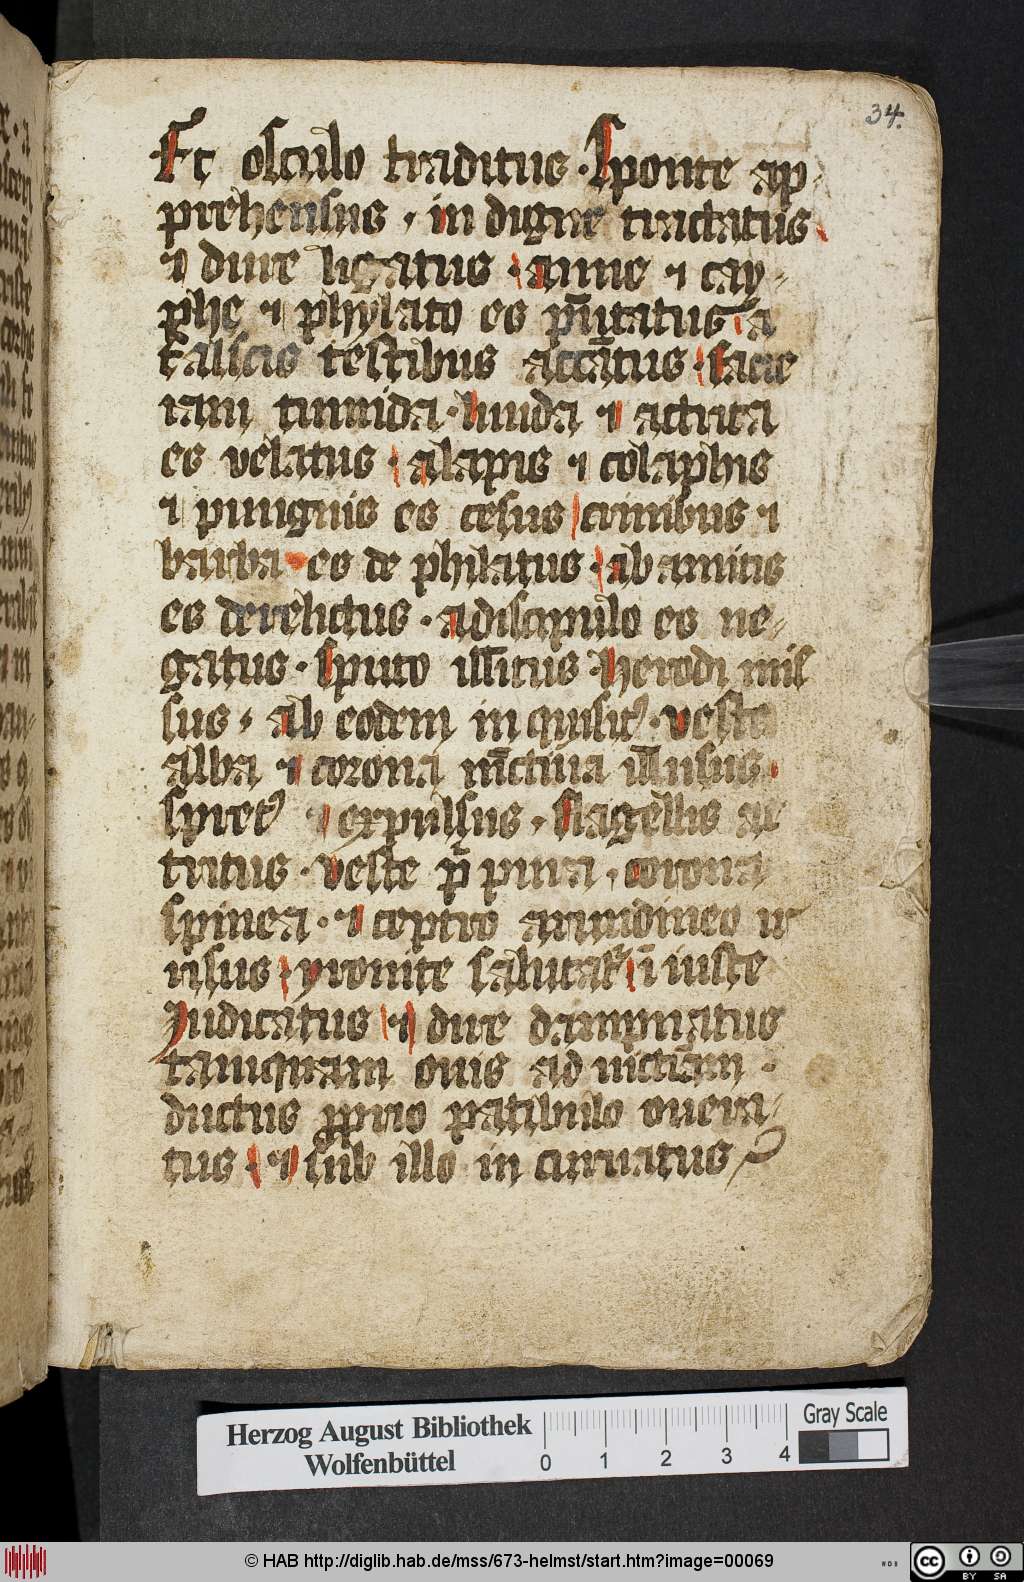 34.
Et osculo traditus · Sponte ap-
prehensus · in digne tractatus
⁊ dure ligatus · anne ⁊ cay-
phe ⁊ phylato es p̄ntatus a
falscis testibus accūatus · facie
tam timida · liuida ⁊
es velatus · alapis ⁊ colaphis
⁊ pungnis es cesus crinibus ⁊
barba es de philatus · ab amicis
es derelictus · a discipulo es ne-
gatus · sputo illītus · herodi mis
sus · ab eodem in quisitꝰ · veste
alba ⁊ corona illusus
spretꝰ ⁊ expulsus · flagellis at
tritus · veste p̄ pura · corona
spinea · ⁊ ceptro arundineo ir
risus · yronice salutatꝰ · ī iuste
Judicatus · ⁊ dure dampnatus
tamquam ouis ad victiām ·
ductus ꝓprio patibulo onera-
tus · ⁊ sub illo in curuatus
Herzog August Bibliothek
Wolfenbüttel
0 1 2 3 4
Gray Scale
© HAB http://diglib.hab.de/mss/673-helmst/start.htm?image=00069
cc BY SA